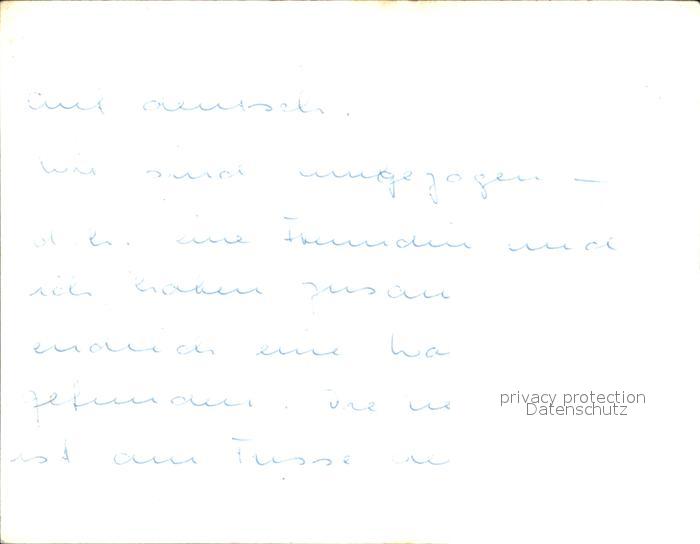 auf deutsch.
Wir sind umgezogen –
d.h. eine Freundin und
ich haben zusam
endlich eine Wo
gefunden. Sie
ist am Fusse
privacy protection
Datenschutz